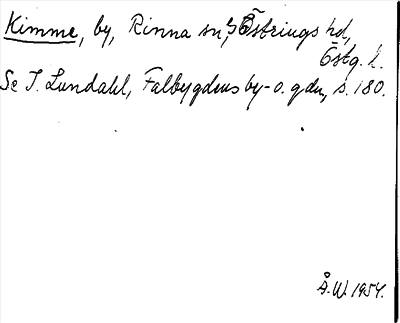 Kimme, by, Rinna sn, Göstrings hd,
Östg. l.
Se I. Lundahl, Falbygdens by- o. gdn, s. 180.
Å. W. 1954.